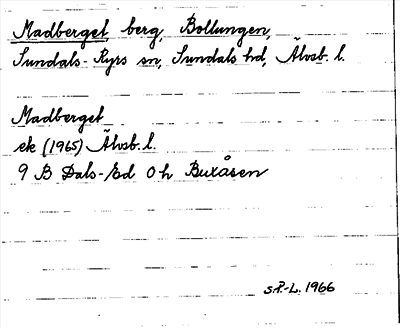 Madberget, berg, Bollungen,
Sundals-Ryrs sn, Sundals hd, Älvsb. l.
Madberget
ek (1965) Älvsb. l.
9 B Dals-Ed 0 h Buxåsen
S.P.-L. 1966